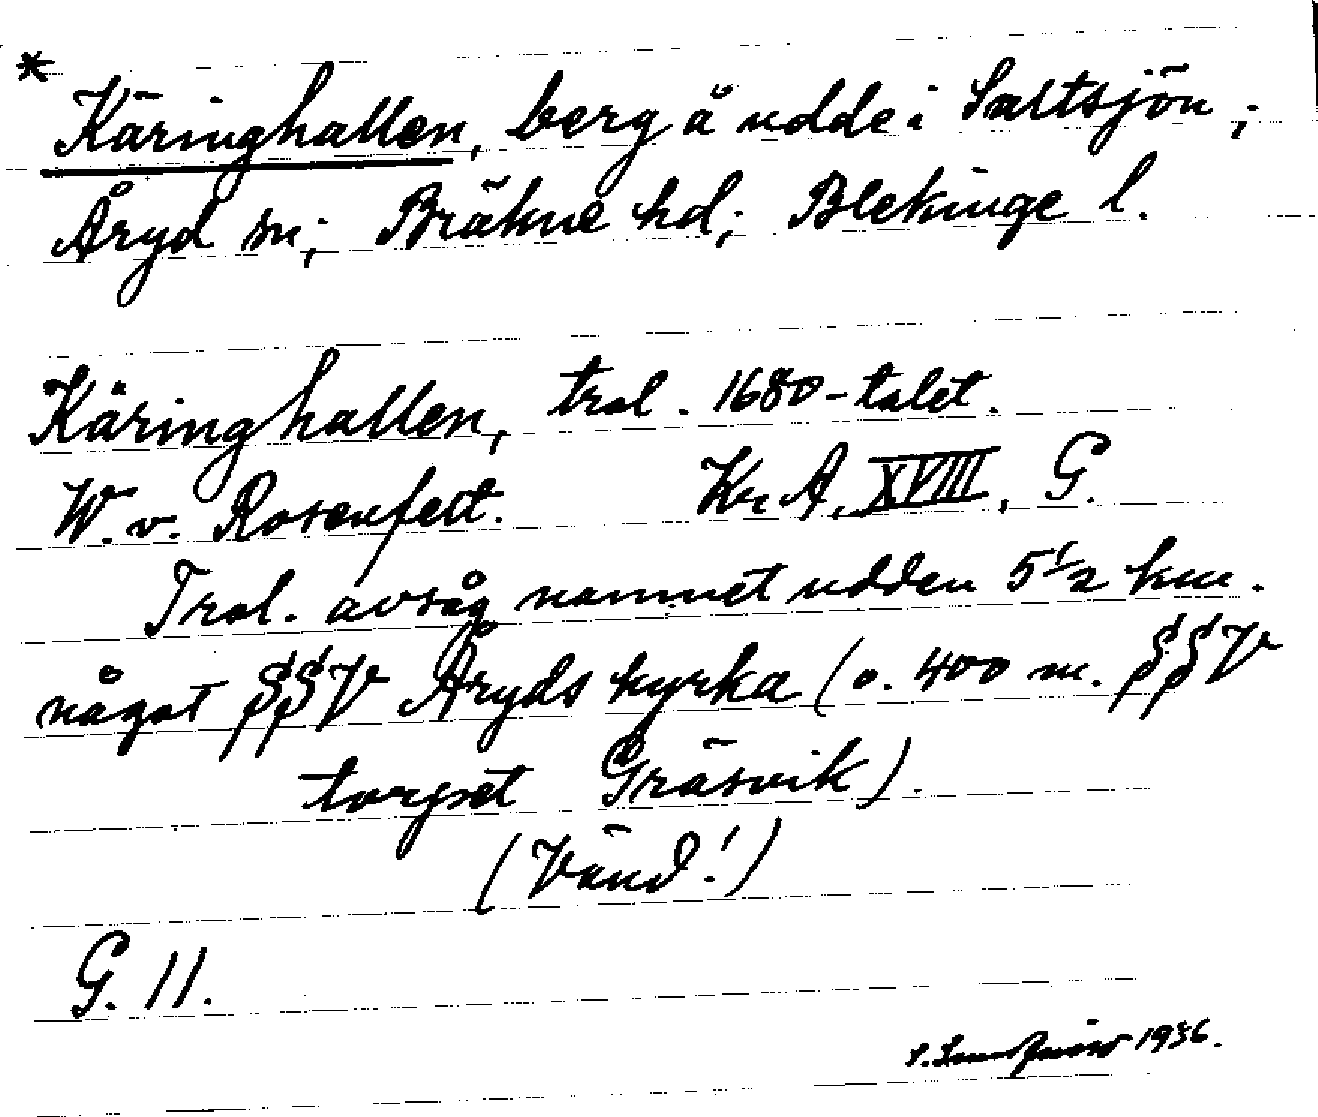 * Käringhallen, berg å udde i Saltsjön;
Åryd sn; Bräkne hd; Blekinge l.
Käringhallen, trol. 1680-talet.
W. v. Rosenfelt. Kr. A. XVIII, G.
Trol. avsåg namnet udden 5 1/2 km.
något SSV Åryds kyrka (o. 400 m. SSV
torpet Gräsvik).
(Vänd!)
G. 11.
1936.